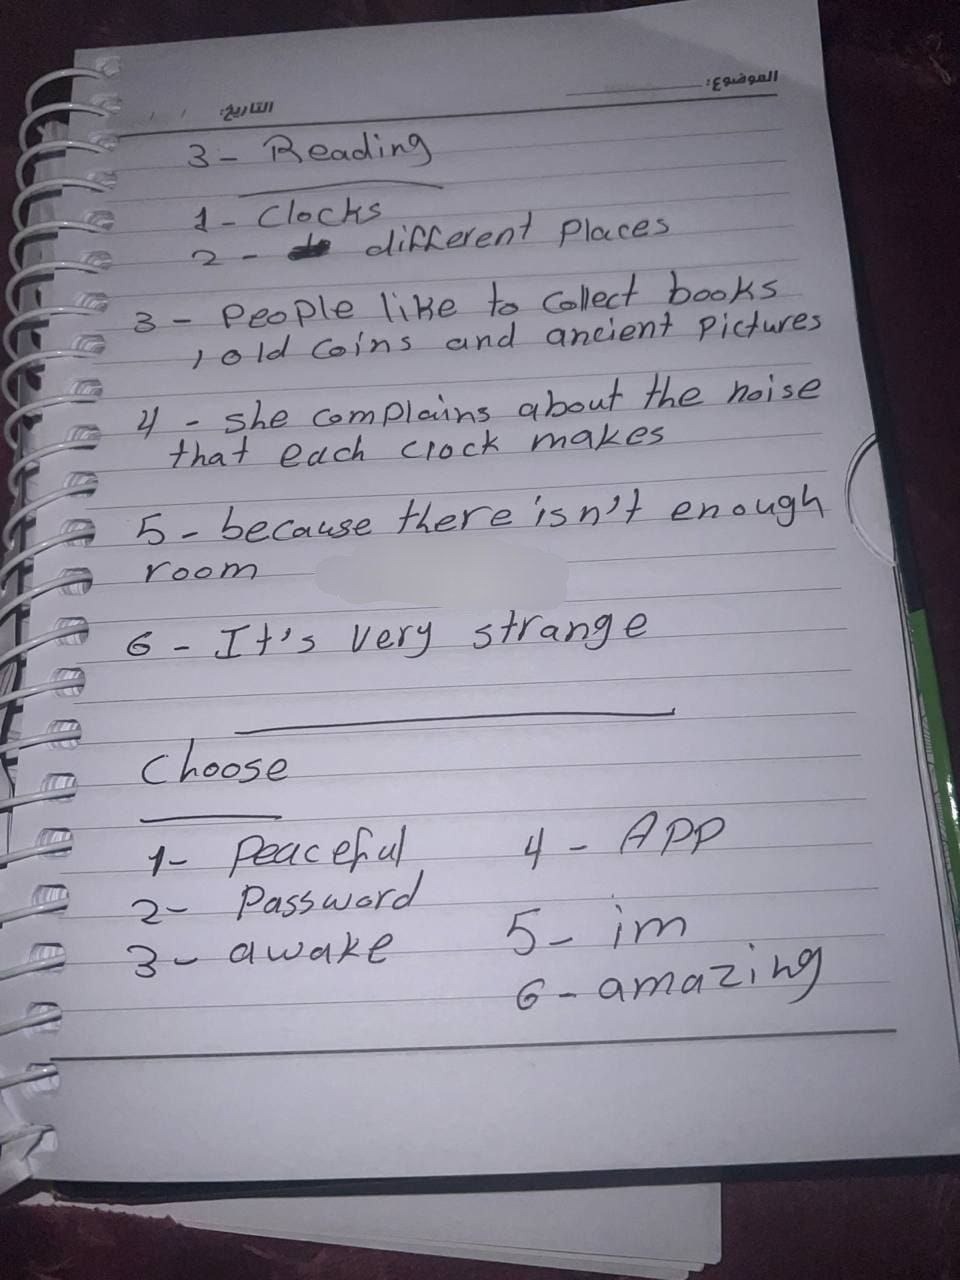 الموضوع:
التاريخ: / /
3 - Reading
1 - Clocks
2 - different places
3 - People like to collect books
, old coins and ancient pictures
4 - she complains about the noise
that each clock makes
5 - because there isn't enough
room
6 - It's very strange
Choose
1- Peaceful
2- Password
3- awake
4 - APP
5- im
6 - amazing